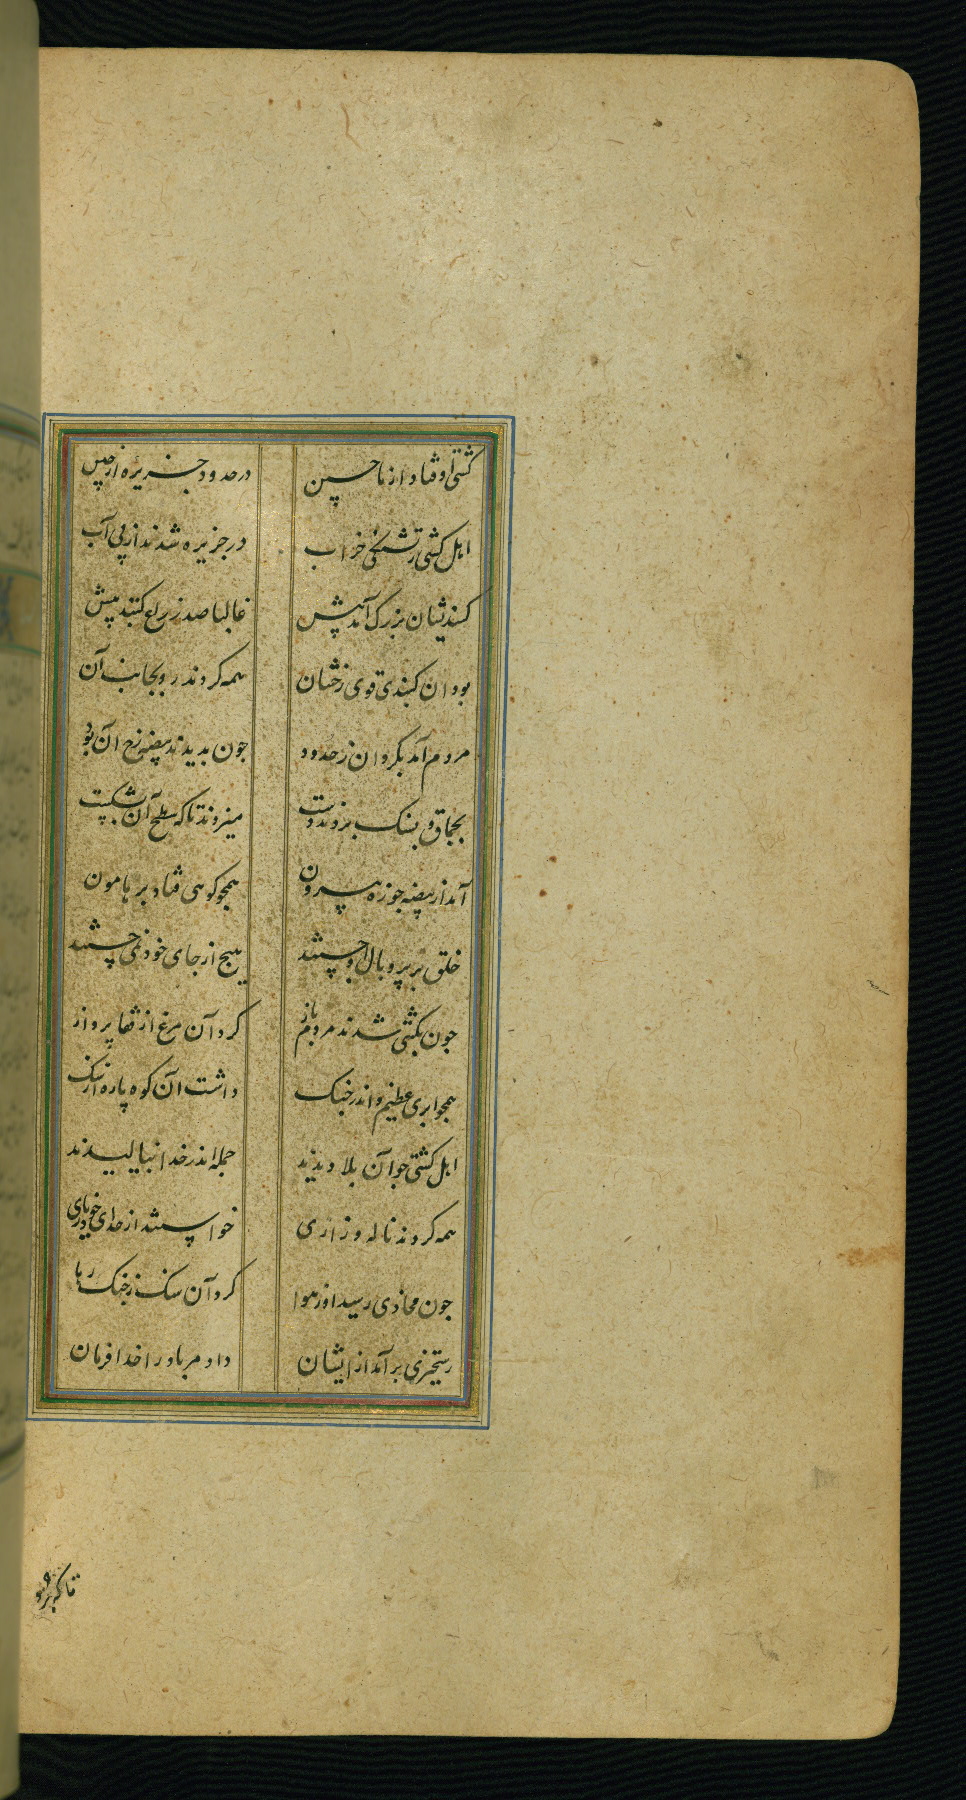 کشتی اوفتاد از ماچین در حدود جزیره از چین
اهل کشتی ز تشنگی خراب در جزیره شدند از پی آب
کنبدیشان بزرک آمد پیش غالبا صد زرع کنبد پیش
بود ان کنبدی قوی رخشان همه کردند رو بجانب آن
مردم آمد بکرد ان ز حدود چون بدیدند بیضه رخ ان بود
بجماق و بسنک بردند دست میزدند تا که سطح آن بشکست
آمد از بیضه جوزه بیرون همجو کوهی فتاد بر هامون
خلق بر پر و بال او جستند هیج از جای خود نمی جستند
جون بکشتی شدند مردم باز کرد آن مرغ از قفا پرواز
همجو ابری عظیم و اندر جنک داشت ان کوه پاره از سنک
اهل کشتی جو آن بلا دیدند جمله اندر خدا بنالیدند
همه کردند ناله و زاری خواستند از خدای خود یاری
جون محاذی رسید او ز هوا کرد آن سنک ز جنک رها
رستخیزی برآمد از ایشان داد مر باد را خدا فرمان